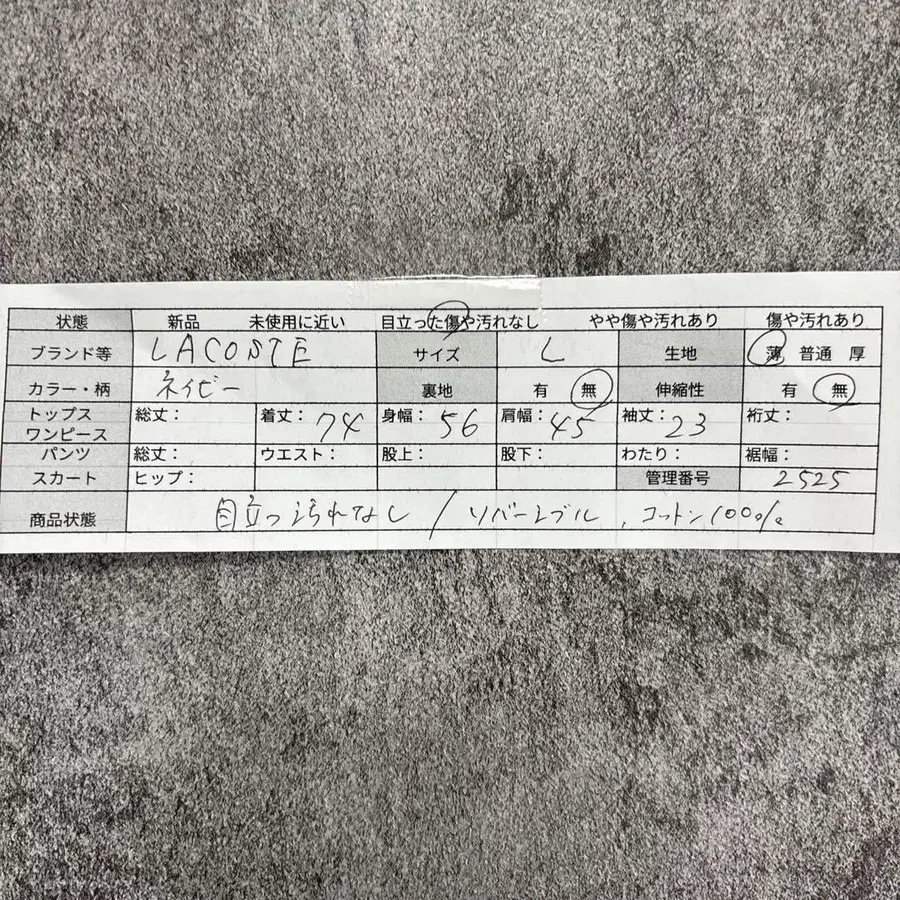 状態 新品 未使用に近い 目立った傷や汚れなし やや傷や汚れあり 傷や汚れあり
ブランド等 LACOSTE サイズ L 生地 薄 普通 厚
カラー・柄 ネイビー 裏地 有 無 伸縮性 有 無
トップス ワンピース 総丈: 着丈: 74 身幅: 56 肩幅: 45 袖丈: 23 裄丈:
パンツ 総丈: ウエスト: 股上: 股下: わたり: 裾幅:
スカート ヒップ: 管理番号 2525
商品状態 目立つ汚れなし / リバーシブル、コットン100%